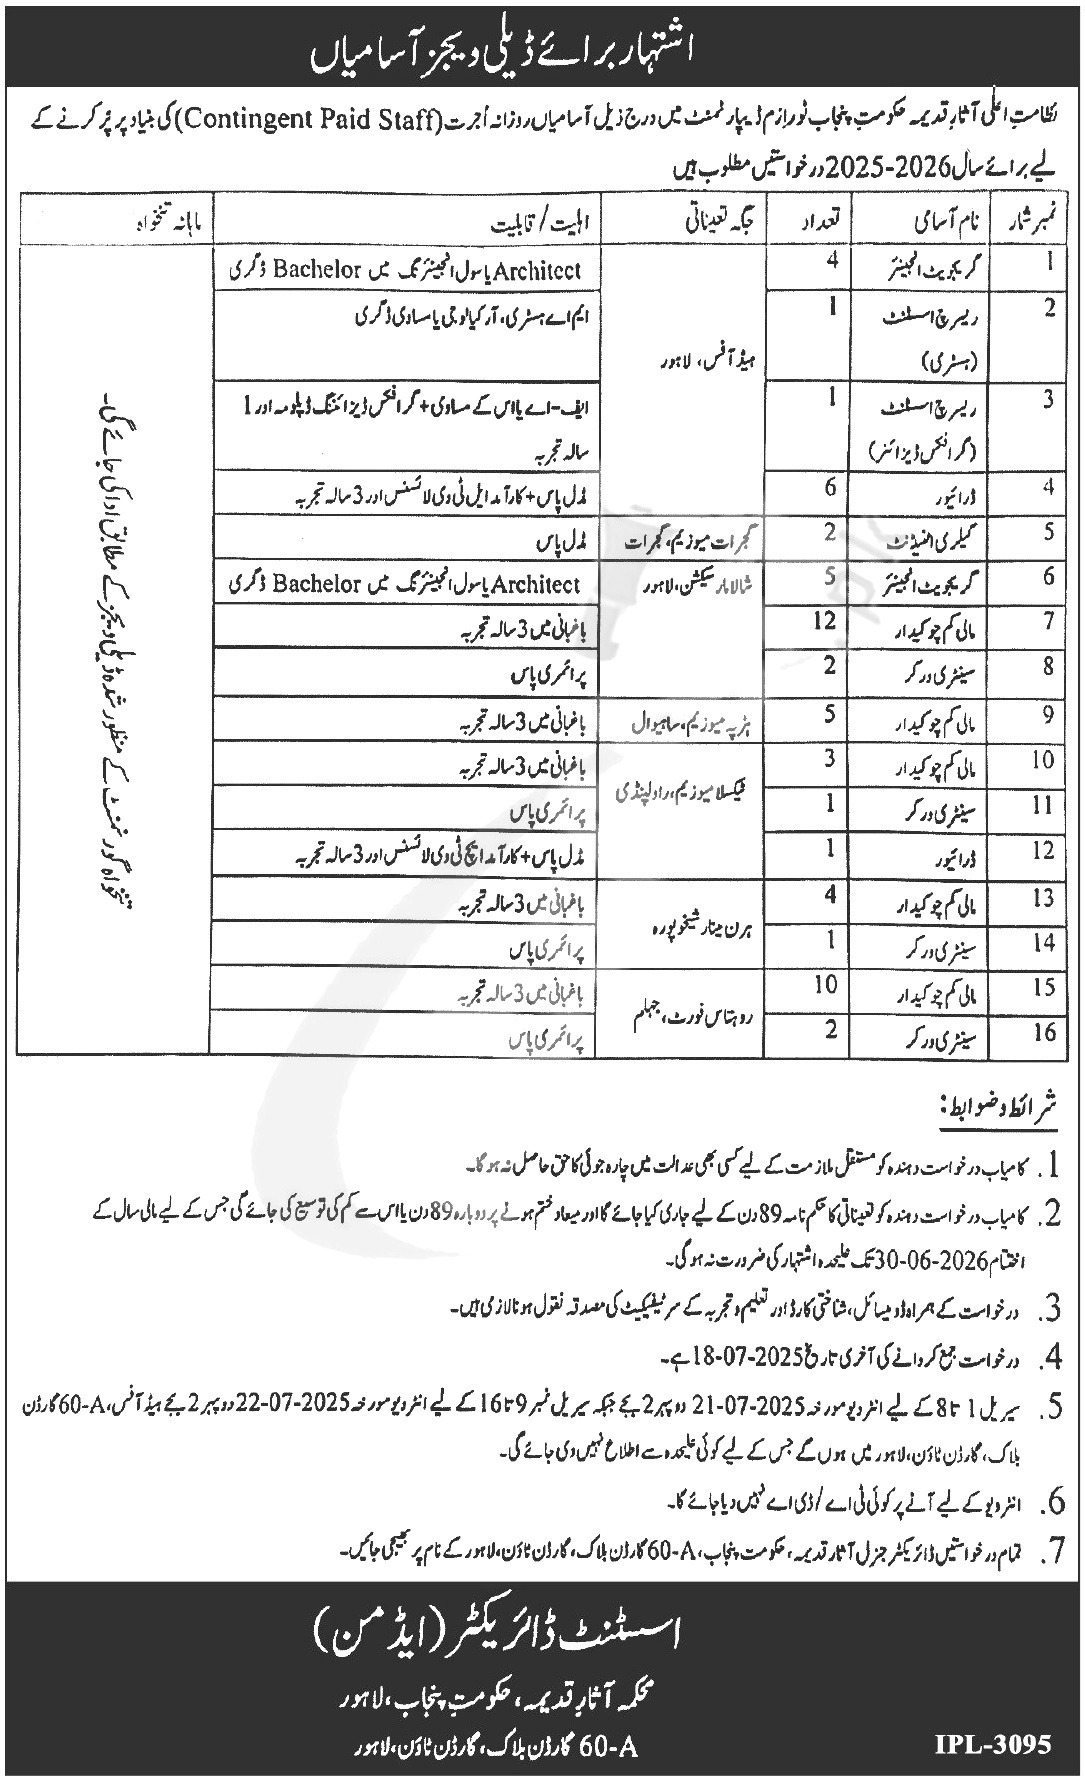 اشتہار برائے ڈیلی ویجز آسامیاں
نظامتِ اعلیٰ آثارِ قدیمہ حکومتِ پنجاب ٹورازم ڈیپارٹمنٹ میں درج ذیل آسامیاں روزانہ اُجرت (Contingent Paid Staff) کی بنیاد پر پُر کرنے کے
لیے برائے سال 2025-2026 درخواستیں مطلوب ہیں
نمبر شمار نام آسامی تعداد جگہ تعیناتی اہلیت / قابلیت ماہانہ تنخواہ
1 گریجویٹ انجینئر 4 Architect یا سول انجینئرنگ میں Bachelor ڈگری
2 ریسرچ اسسٹنٹ 1 ایم اے ہسٹری، آرکیالوجی یا مساوی ڈگری
(ہسٹری)
ہیڈ آفس، لاہور
3 ریسرچ اسسٹنٹ 1 ایف-اے یا اس کے مساوی + گرافکس ڈیزائننگ ڈپلومہ اور 1
(گرافکس ڈیزائنر) سالہ تجربہ
4 ڈرائیور 6 مڈل پاس + کارآمد ایل ٹی وی لائسنس اور 3 سالہ تجربہ
5 گیلری اٹینڈنٹ 2 گجرات میوزیم، گجرات مڈل پاس
6 گریجویٹ انجینئر 5 شالامار سیکشن، لاہور Architect یا سول انجینئرنگ میں Bachelor ڈگری
7 مالی کم چوکیدار 12 باغبانی میں 3 سالہ تجربہ
8 سینٹری ورکر 2 پرائمری پاس
9 مالی کم چوکیدار 5 ہڑپہ میوزیم، ساہیوال باغبانی میں 3 سالہ تجربہ
10 مالی کم چوکیدار 3 باغبانی میں 3 سالہ تجربہ
ٹیکسلا میوزیم، راولپنڈی
11 سینٹری ورکر 1 پرائمری پاس
12 ڈرائیور 1 مڈل پاس + کارآمد ایچ ٹی وی لائسنس اور 3 سالہ تجربہ
13 مالی کم چوکیدار 4 باغبانی میں 3 سالہ تجربہ
ہرن مینار شیخوپورہ
14 سینٹری ورکر 1 پرائمری پاس
15 مالی کم چوکیدار 10 باغبانی میں 3 سالہ تجربہ
روہتاس فورٹ، جہلم
16 سینٹری ورکر 2 پرائمری پاس
تنخواہ گورنمنٹ کے منظور شدہ ڈیلی ویجز کے مطابق ادا کی جائے گی۔
شرائط و ضوابط:
1. کامیاب درخواست دہندہ کو مستقل ملازمت کے لیے کسی بھی عدالت میں چارہ جوئی کا حق حاصل نہ ہو گا۔
2. کامیاب درخواست دہندہ کو تعیناتی کا حکم نامہ 89 دن کے لیے جاری کیا جائے گا اور میعاد ختم ہونے پر دوبارہ 89 دن یا اس سے کم کی توسیع کی جائے گی جس کے لیے مالی سال کے
اختتام 30-06-2026 تک علیحدہ اشتہار کی ضرورت نہ ہوگی۔
3. درخواست کے ہمراہ ڈومیسائل، شناختی کارڈ اور تعلیم و تجربہ کے سرٹیفکیٹ کی مصدقہ نقول ہونا لازمی ہیں۔
4. درخواست جمع کروانے کی آخری تاریخ 18-07-2025 ہے۔
5. سیریل 1 تا 8 کے لیے انٹرویو مورخہ 21-07-2025 دوپہر 2 بجے جبکہ سیریل نمبر 9 تا 16 کے لیے انٹرویو مورخہ 22-07-2025 دوپہر 2 بجے ہیڈ آفس، 60-A گارڈن
بلاک، گارڈن ٹاؤن، لاہور میں ہوں گے جس کے لیے کوئی علیحدہ سے اطلاع نہیں دی جائے گی۔
6. انٹرویو کے لیے آنے پر کوئی ٹی اے / ڈی اے نہیں دیا جائے گا۔
7. تمام درخواستیں ڈائریکٹر جنرل آثار قدیمہ، حکومت پنجاب، 60-A گارڈن بلاک، گارڈن ٹاؤن، لاہور کے نام پر بھیجی جائیں۔
اسسٹنٹ ڈائریکٹر (ایڈمن)
محکمہ آثارِ قدیمہ، حکومتِ پنجاب، لاہور
60-A گارڈن بلاک، گارڈن ٹاؤن، لاہور
IPL-3095